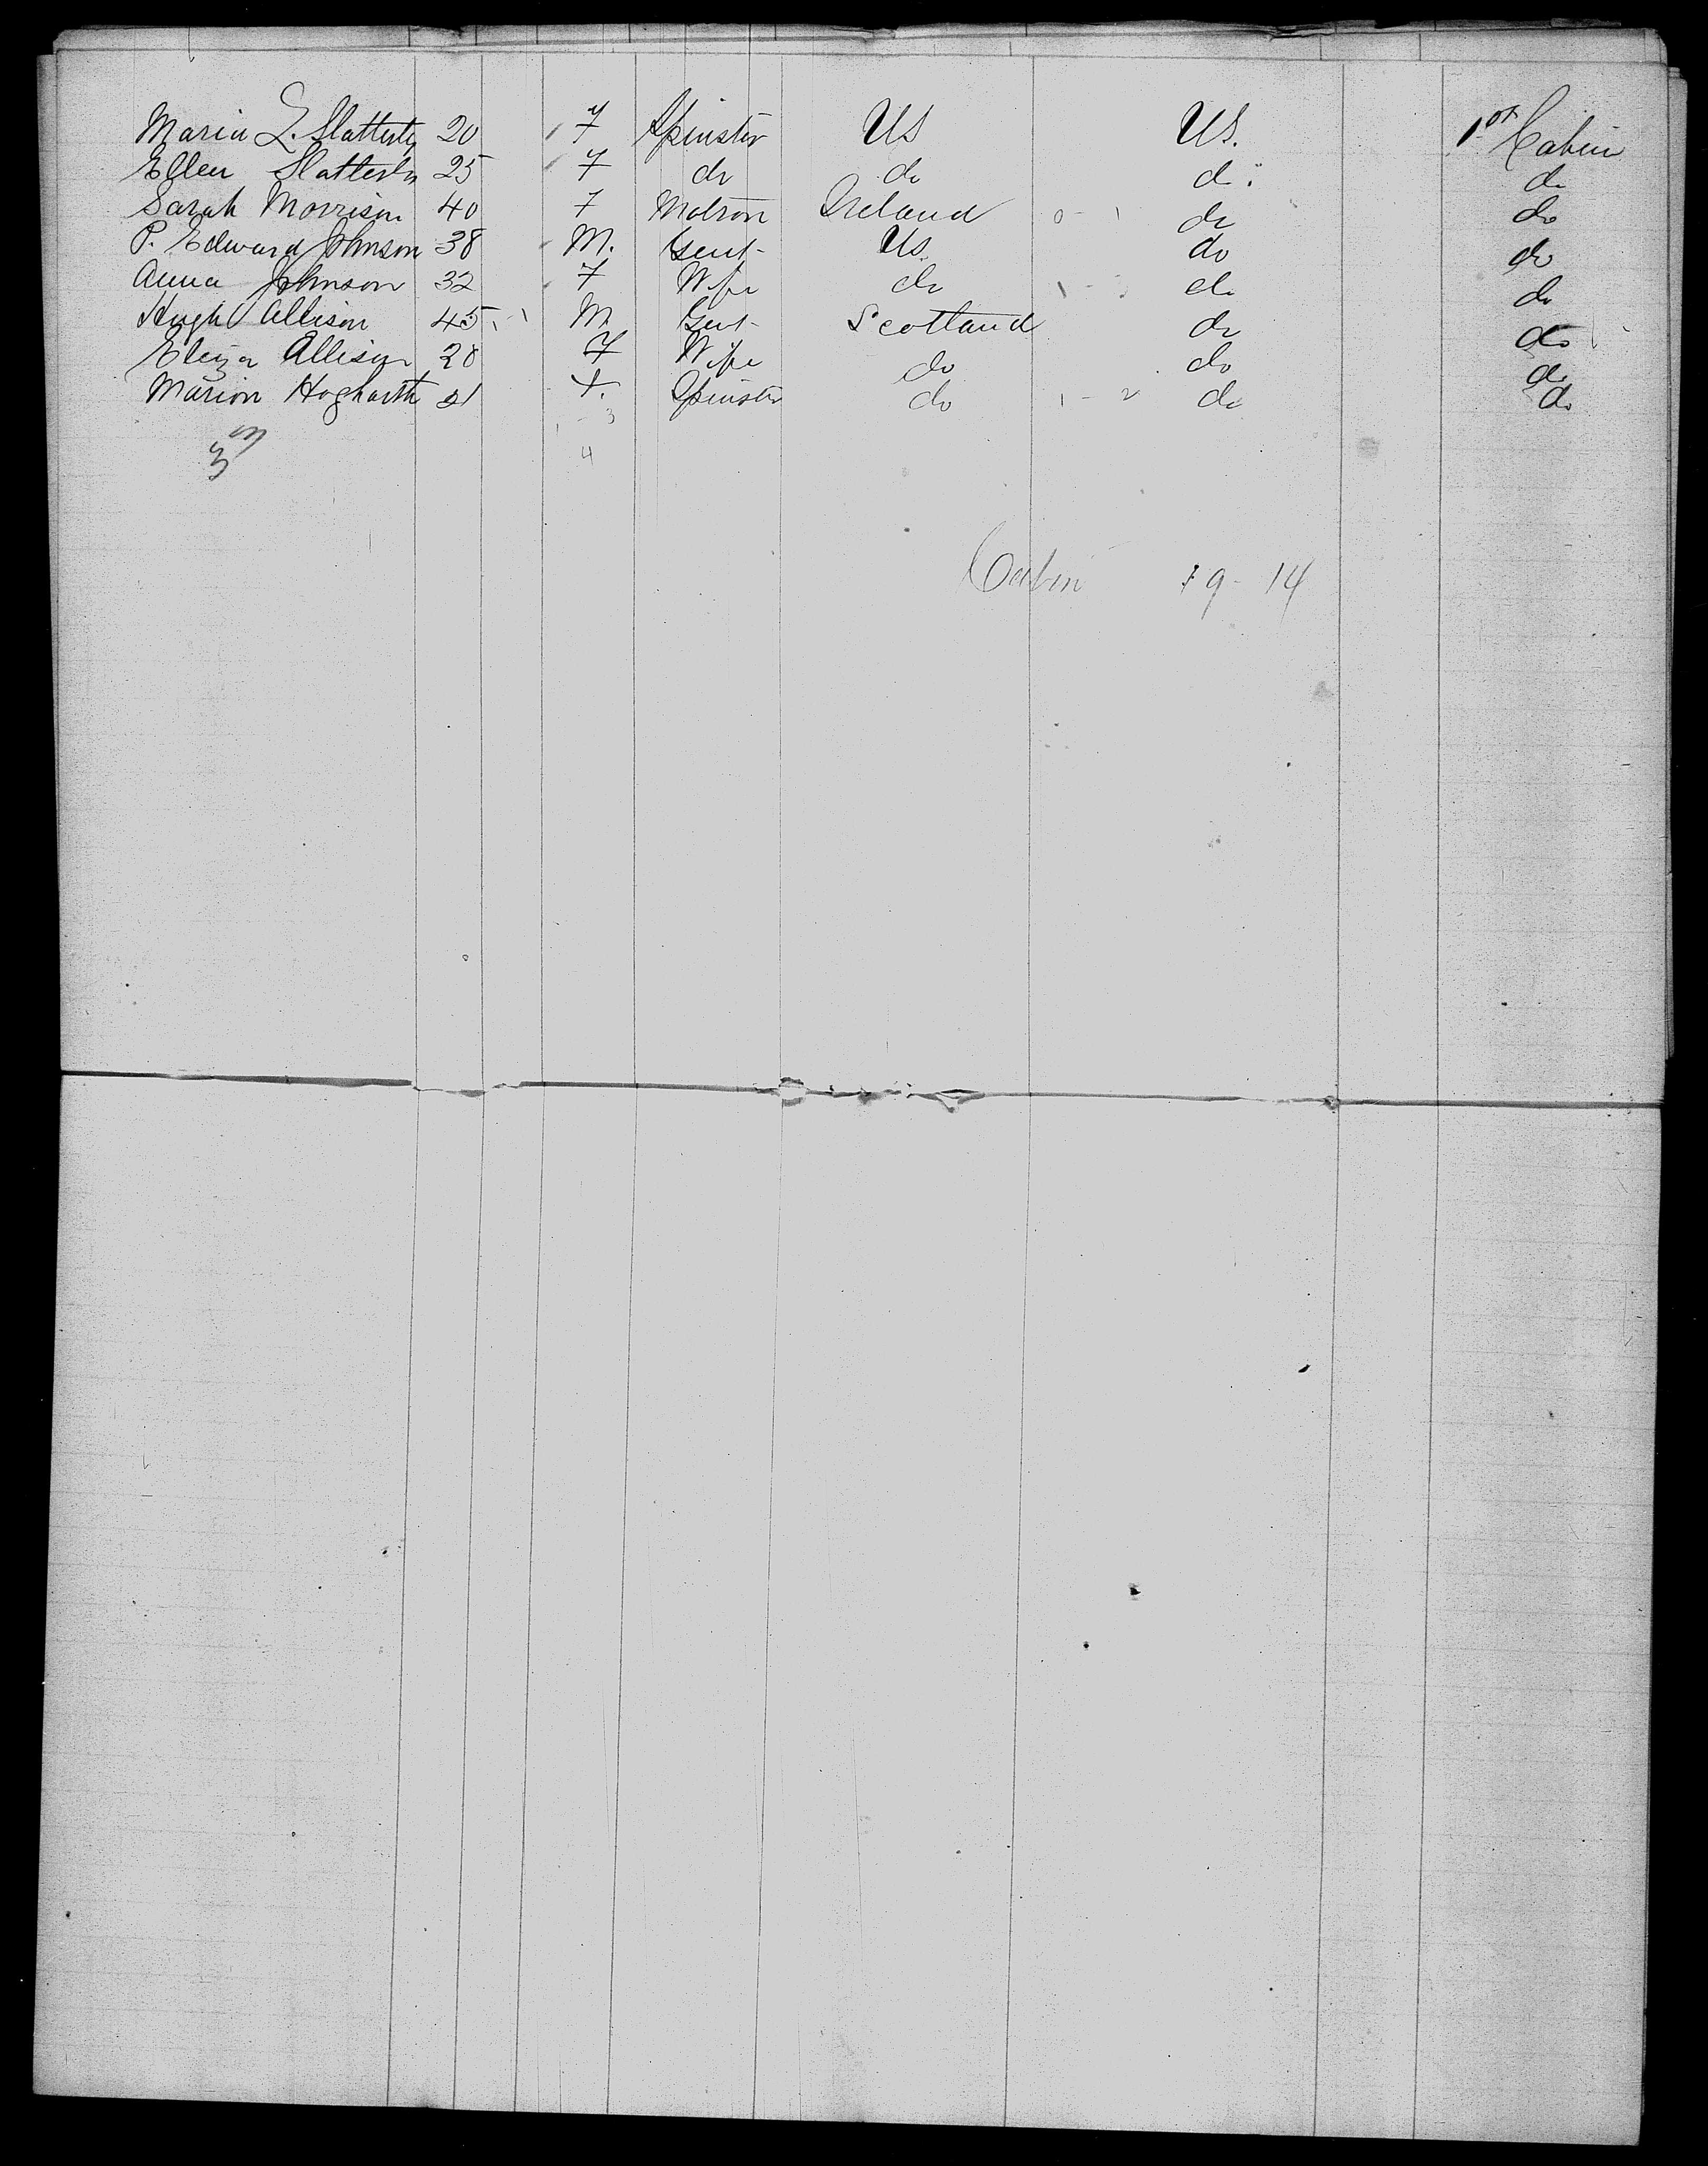 Maria L. Slattery 20 F Spinster US US. 1st Cabin
Ellen Slattery 25 F do do do. do
Sarah Morrison 40 F Matron Ireland 0 - 1 do do
P. Edward Johnson 38 M. Gent- US. do do
Anna Johnson 32 F Wife do 1 - 3 do do
Hugh Allison 45 M. Gent- Scotland do do
Eliza Allison 28 F Wife do do do
Marion Hogharth 21 F. Spinster do 1 - 2 do do
1 - 3
4
Cabin 9 - 14